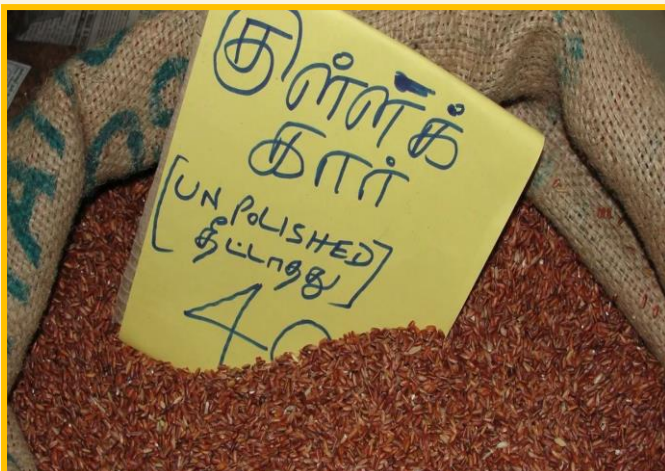 குள்ளக்
கார்
[UNPOLISHED
தீட்டாதது]
40